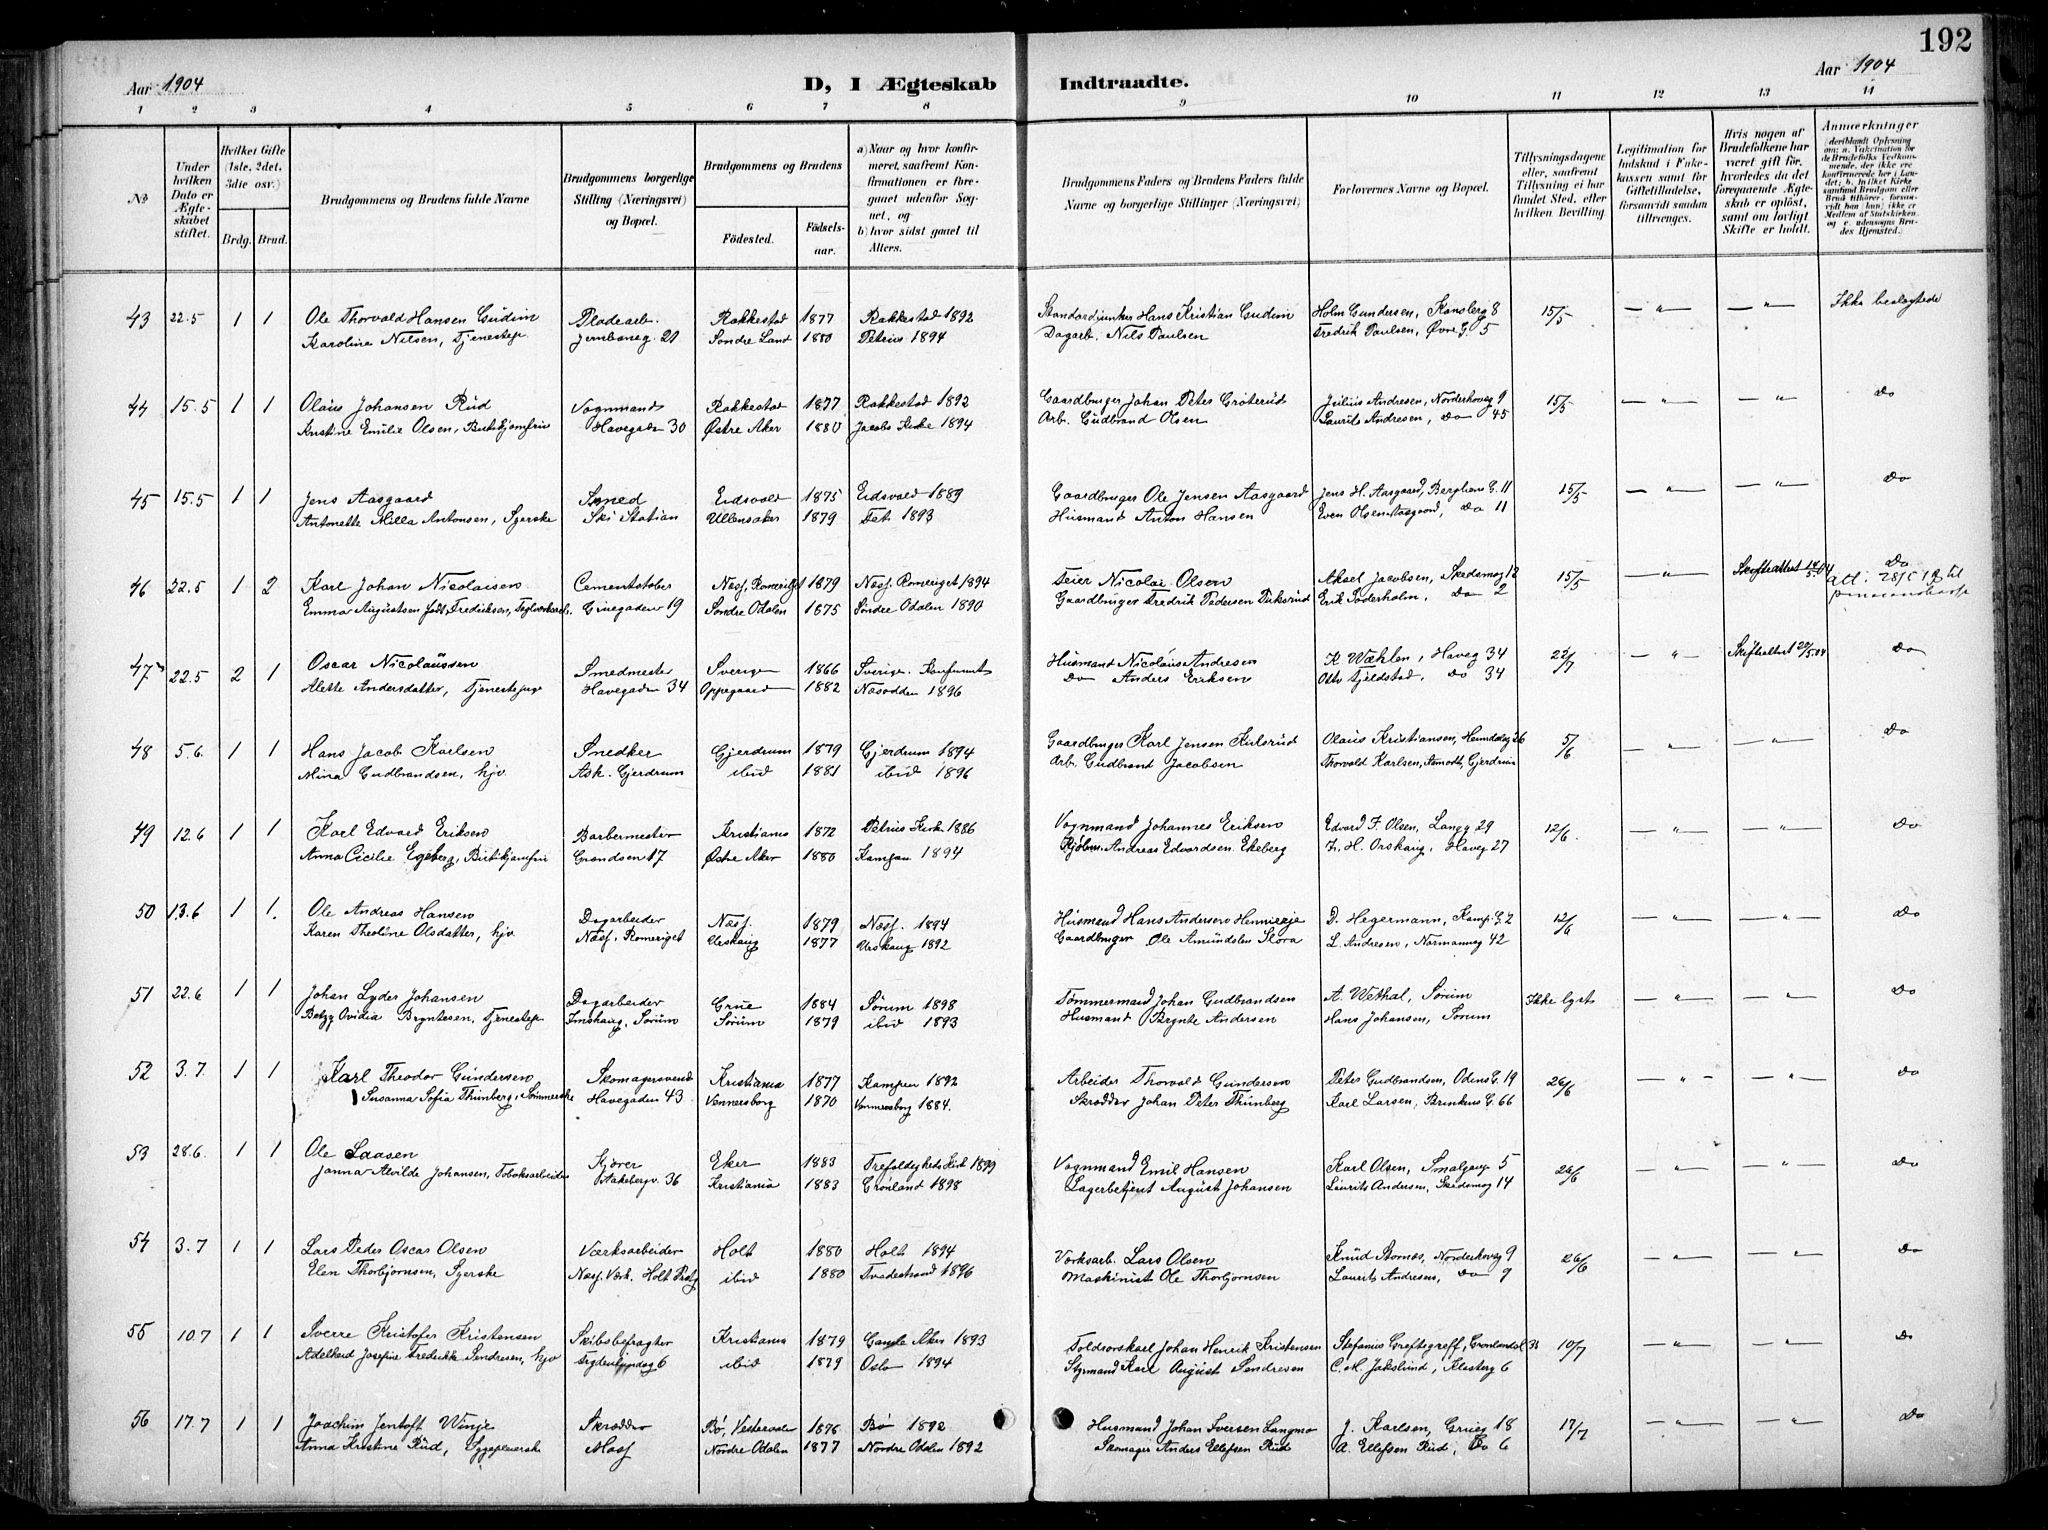 192
Aar 1904 D, I Ægteskab Indtraadte. Aar 1904
1 2 3 4 5 6 7 8 9 10 11 12 13 14
№
Under hvilken Dato er Ægteskabet stiftet.
Hvilket Gifte (1ste, 2det, 3die osv.)
Brdg. Brud.
Brudgommens og Brudens fulde Navne
Brudgommens borgerlige Stilling (Næringsvei) og Bopæl.
Brudgommens og Brudens
Fødested. Fødselsaar.
a) Naar og hvor konfirmeret, saafremt Konfirmationen er foregaaet udenfor Sognet, og b) hvor sidst gaaet til Alters.
Brudgommens Faders og Brudens Faders fulde Navne og borgerlige Stillinger (Næringsvei)
Forlovernes Navne og Bopæl.
Tillysningsdagene eller, saafremt Tillysning ei har fundet Sted, efter hvilken Bevilling.
Legitimation for Indskud i Enkekassen samt for Giftetilladelse, forsaavidt saadan tiltrænges.
Hvis nogen af Brudefolkene har været gift før, hvorledes da det foregaaende Ægteskab er opløst, samt om lovligt Skifte er holdt.
Anmerkninger (deriblandt Oplysning om: a. Vaksination for de Brudefolks Vedkommende, der ikke ere konfirmerede her i Landet; b. hvilket Kirkesamfund Brudgom eller Brud tilhører, forsaavidt han (hun) ikke er Medlem af Statskirken, og c. udensogns Brudes Hjemsted.)
43 22.5 1 1 Ole Thorvald Hansen Gudim Pladearb. Rakkestad 1877 Rakkestad 1892 Standardjunker Hans Kristian Gudim Holm Gundersen, Kansberg 8 15/5 — „ — — „ — Ikke beslegtede
Karoline Nilsen, Tjenestepe. Jernbaneg. 21 Søndre Land 1880 Petrius 1894 Dagarb. Nils Paulsen Fredrik Paulsen, Øvre G. 5
44 15.5 1 1 Olaus Johansen Rud Vognmand Rakkestad 1877 Rakkestad 1892 Gaardbruger Johan Peter Grøterud Julius Andresen, Norderhoveg 9 15/5 — „ — — „ — Do
Kristine Emilie Olsen, Butikjomfru Havegaden 30 Østre Aker 1880 Jacobs Kirke 1894 Arb. Gudbrand Olsen Laurits Andresen, Do 45
45 15.5 1 1 Jens Aasgaard Smed Eidsvold 1875 Eidsvold 1889 Gaardbruger Ole Jensen Aasgaard Jens H. Aasgaard, Bergliens G. 11 15/5 — „ — — „ — Do
Antonette Milla Antonsen, Syerske Ski Station Ullensaker 1879 Fet 1893 Husmand Anton Hansen Even Olsen Aasgaard, Do 11
46 22.5 1 2 Karl Johan Nicolaisen Cementstøber Næs, Romeriget 1879 Næs, Romeriget 1894 Feier Nicolai Olsen Aksel Jacobsen, Skedsmog 12 15/5 — „ — Skifteattest Do
Emma Augustsen født Fredriksen, Teglverksarb. Ginegaden 19 Søndre Odalen 1875 Søndre Odalen 1890 Gaardbruger Fredrik Pedersen Erik Søderholm, Do 2 att. til pensionskasse
47 22.5 2 1 Oscar Nicolaussen Smedmester Sverige 1866 Sverige. Konfirmert Husmand Nicolaus Andresen K. Wæhlen, Haveg 34 22/7 — „ — Skifteattest 20/5.04 Do
Alette Andersdatter, Tjenestepige Havegaden 34 Oppegaard 1882 Næsodden 1896 Do Anders Eriksen Otto Fjeldstad, Do 34
48 5.6 1 1 Hans Jacob Karlsen Snedker Gjerdrum 1879 Gjerdrum 1894 Gaardbruger Karl Jensen Kulsrud Olaus Kristiansen, Heimdalsg 26 5/6 — „ — — „ — Do
Mina Gudbrandsen, hjv. Ask. Gjerdrum ibid 1881 ibid 1896 Arb. Gudbrand Jacobsen Thorvald Karlsen, Aamodt, Gjerdrum
49 12.6 1 1 Karl Edvard Eriksen Barbermester Kristiania 1872 Petrius Kirke 1886 Vognmand Johannes Eriksen Edvard F. Olsen, Langg 29 12/6. — „ — — „ — Do
Anna Cicilie Egeberg, Butikjomfru Grændsen 17 Østre Aker 1880 Kampen 1894 Kjøbm. Andreas Edvardsen Ekeberg H. Orskaug, Haveg 27
50 13.6 1 1. Ole Andreas Hansen Dagarbeider Næs. 1879 Næs. 1894 Husmand Hans Andersen Hennieeje D. Hegermann, Kamp. G. 2 12/6 — „ — — „ — Do
Karen Theoline Olsdatter, hjv. Næs, Romeriget Urskaug 1877 Urskaug 1892 Gaardbruger Ole Amundsen Slora L. Andresen, Normannsg 42
51 22.6 1 1 Johan Lyder Johansen Dagarbeider Grue 1884 Sørum 1898 Tømmermand Johan Gudbrandsen A. Wethal, Sørum Ikke lyst — „ — — „ — Do
Betzy Ovidia Bryntesen, Tjenestepe Imshaug, Sørum Sørum 1879 ibid 1893 Husmand Brynte Andersen Hans Johansen, Sørum
52 3.7 1 1 Karl Theodor Gundersen Skomagersvend Kristiania 1877 Kampen 1892 Arbeider Thorvald Gundersen Peter Gudbrandsen, Odins G. 19 26/6 — „ — — „ — Do
Susanna Sofia Thunberg, Sømmerske Havegaden 43. Vennersborg 1870 Vennersborg 1884. Skrædder Johan Peter Thunberg Karl Larsen, Brinkens G. 66
53 28.6. 1 1 Ole Laasen Kjører Eker 1883 Trefoldigheds Kirk 1899 Vognmand Emil Hansen Karl Olsen, Smalgang 5 26/6 — „ — — „ — Do
Janna Alvilde Johansen, Tobaksarbeider Stakebergv. 36 Kristiania 1883 Grønland 1898 Lagerbetjent August Johansen Laurits Andersen, Skedsmog 14
54 3.7 1 1 Lars Peder Oscar Olsen Værksarbeider Holt 1880 Holt 1894 Værksarb. Lars Olsen Knud Stornæs, Norderhoveg 9 26/6 — „ — — „ — Do
Elen Thorbjørnsen, Syerske Næs Værk. Holt Prstg ibid 1880 Tvedestrand 1896 Maskinist Ole Thorbjørnsen Laurits Andresen, Do 9
55 10.7 1 1 Sverre Kristofer Kristensen Skibsbefragter Kristiania 1879 Gamle Aker 1893 Toldrorskarl Johan Henrik Kristensen Stefanus Greftegreff, Grønlandsl 36 10/7 — „ — — „ — Do
Adelheid Josefine Fredrikke Sendresen, hjv ibid 1879 Oslo 1894 Styrmand Karl August Sendresen C. M. Jakslund, Klosterg 6
56 17.7 1 1 Joachim Jentoft Winje Skrædder Bø, Vesteraalen 1876 Bø 1892 Husmand Johan Iversen Langmo J. Karlsen, Grueg 18 17/7 — „ — — „ — Do
Anna Kristine Rud, Sygepleierske Moss Nordre Odalen 1877 Nordre Odalen 1892 Skomager Anders Ellefsen Rud A. Ellefsen Rud, Do 6